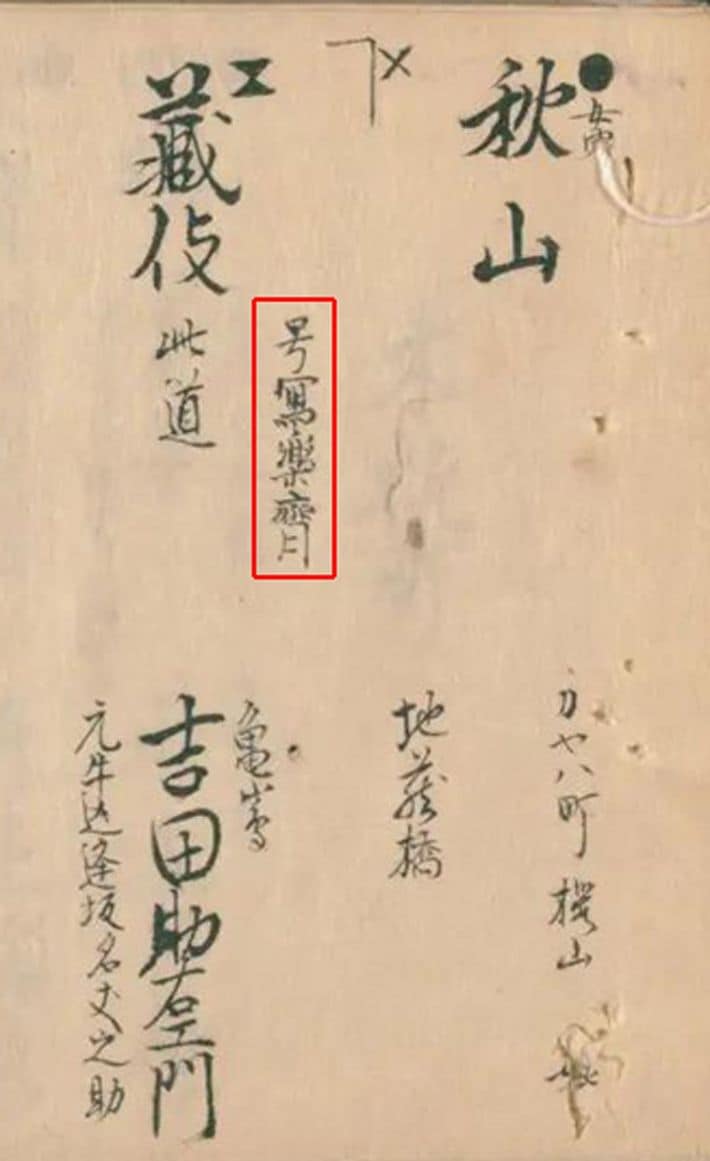 秋山
カヤハ町 桜山
地蔵橋
号寫樂齋
亀嶌
藏伎 此道
吉田助右エ門
元牛込逢坂名丈之助